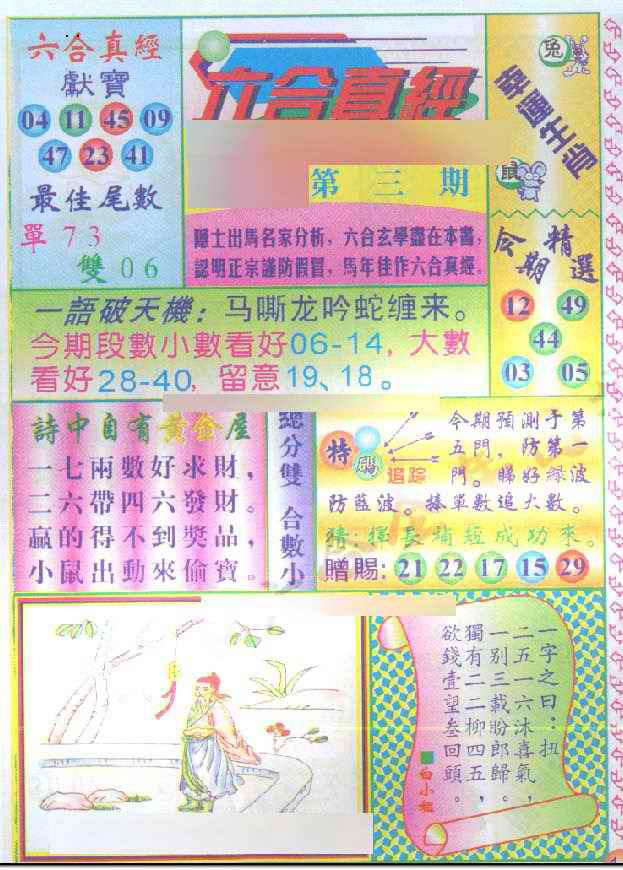 六合真經
獻寶
04 11 45 09
47 23 41
最佳尾數
單 7 3
雙 0 6
六合真經
第三期
隱士出馬名家分析，六合玄學盡在本書，
認明正宗謹防假冒，馬年佳作六合真經。
兔
幸運生肖
鼠
今期
精選
12 49
44
03 05
一語破天機：马嘶龙吟蛇缠来。
今期段數小數看好06-14，大數
看好28-40，留意19、18。
詩中自有黄金屋
一七兩數好求財，
二六帶四六發財。
贏的得不到獎品，
小鼠出動來偷寶。
總分雙 合數小
特碼
追踪
今期預測于第
五門，防第一
門。睇好绿波
防藍波。捧單數追大數。
猜：揮長補短成功來。
贈賜：21 22 17 15 29
一字之曰：扭
二五一六沐喜氣，
一别三載盼郎歸。
獨有二二柳四五，
欲錢壹望叁回頭。
白小姐